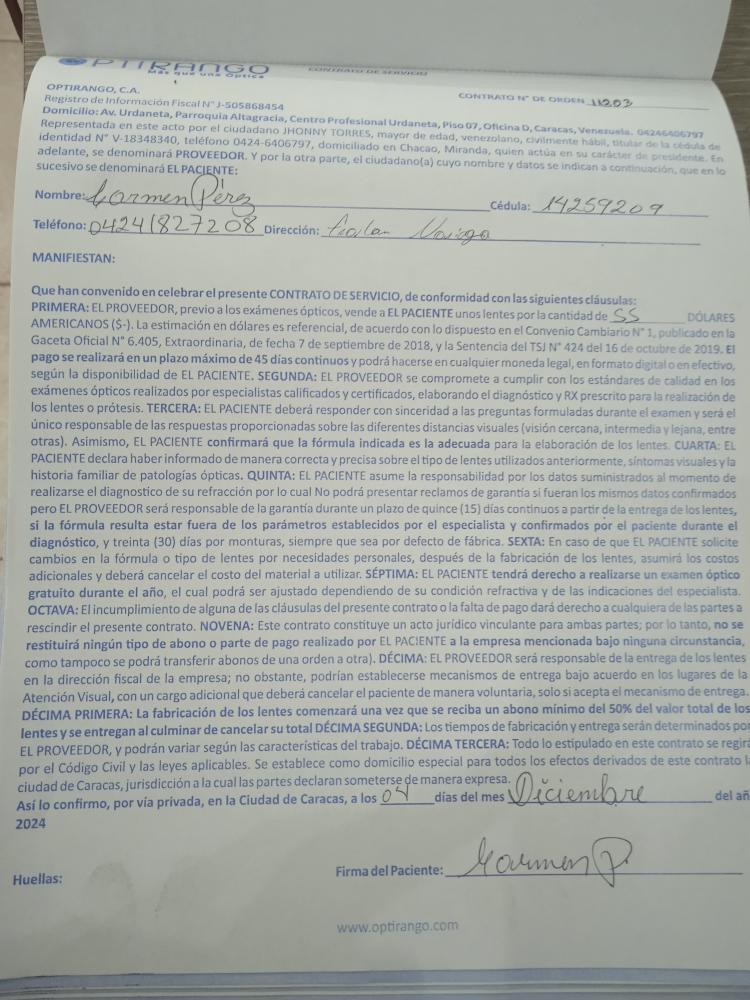 OPTIRANGO
Más que una Óptica
CONTRATO DE SERVICIO
OPTIRANGO, C.A.
CONTRATO N° DE ORDEN 11203
Registro de Información Fiscal N° J-505868454
Domicilio: Av. Urdaneta, Parroquia Altagracia, Centro Profesional Urdaneta, Piso 07, Oficina D, Caracas, Venezuela. 04246406797
Representada en este acto por el ciudadano JHONNY TORRES, mayor de edad, venezolano, civilmente hábil, titular de la cédula de
identidad N° V-18348340, teléfono 0424-6406797, domiciliado en Chacao, Miranda, quien actúa en su carácter de presidente. En
adelante, se denominará PROVEEDOR. Y por la otra parte, el ciudadano(a) cuyo nombre y datos se indican a continuación, que en lo
sucesivo se denominará EL PACIENTE:
Nombre: Carmen Pérez Cédula: 14259209
Teléfono: 04241827208 Dirección:
MANIFIESTAN:
Que han convenido en celebrar el presente CONTRATO DE SERVICIO, de conformidad con las siguientes cláusulas:
PRIMERA: EL PROVEEDOR, previo a los exámenes ópticos, vende a EL PACIENTE unos lentes por la cantidad de 55 DÓLARES
AMERICANOS ($-). La estimación en dólares es referencial, de acuerdo con lo dispuesto en el Convenio Cambiario N° 1, publicado en
Gaceta Oficial N° 6.405, Extraordinaria, de fecha 7 de septiembre de 2018, y la Sentencia del TSJ N° 424 del 16 de octubre de 2019. El
pago se realizará en un plazo máximo de 45 días continuos y podrá hacerse en cualquier moneda legal, en formato digital o en efectivo,
según la disponibilidad de EL PACIENTE. SEGUNDA: EL PROVEEDOR se compromete a cumplir con los estándares de calidad en los
exámenes ópticos realizados por especialistas calificados y certificados, elaborando el diagnóstico y RX prescrito para la realización de
los lentes o prótesis. TERCERA: EL PACIENTE deberá responder con sinceridad a las preguntas formuladas durante el examen y será el
único responsable de las respuestas proporcionadas sobre las diferentes distancias visuales (visión cercana, intermedia y lejana, entre
otras). Asimismo, EL PACIENTE confirmará que la fórmula indicada es la adecuada para la elaboración de los lentes. CUARTA: EL
PACIENTE declara haber informado de manera correcta y precisa sobre el tipo de lentes utilizados anteriormente, síntomas visuales y la
historia familiar de patologías ópticas. QUINTA: EL PACIENTE asume la responsabilidad por los datos suministrados al momento de
realizarse el diagnostico de su refracción por lo cual No podrá presentar reclamos de garantía si fueran los mismos datos confirmados
pero EL PROVEEDOR será responsable de la garantía durante un plazo de quince (15) días continuos a partir de la entrega de los lentes,
si la fórmula resulta estar fuera de los parámetros establecidos por el especialista y confirmados por el paciente durante el
diagnóstico, y treinta (30) días por monturas, siempre que sea por defecto de fábrica. SEXTA: En caso de que EL PACIENTE solicite
cambios en la fórmula o tipo de lentes por necesidades personales, después de la fabricación de los lentes, asumirá los costos
adicionales y deberá cancelar el costo del material a utilizar. SÉPTIMA: EL PACIENTE tendrá derecho a realizarse un examen óptico
gratuito durante el año, el cual podrá ser ajustado dependiendo de su condición refractiva y de las indicaciones del especialista.
OCTAVA: El incumplimiento de alguna de las cláusulas del presente contrato o la falta de pago dará derecho a cualquiera de las partes a
rescindir el presente contrato. NOVENA: Este contrato constituye un acto jurídico vinculante para ambas partes; por lo tanto, no se
restituirá ningún tipo de abono o parte de pago realizado por EL PACIENTE a la empresa mencionada bajo ninguna circunstancia,
como tampoco se podrá transferir abonos de una orden a otra). DÉCIMA: EL PROVEEDOR será responsable de la entrega de los lentes
en la dirección fiscal de la empresa; no obstante, podrían establecerse mecanismos de entrega bajo acuerdo en los lugares de la
Atención Visual, con un cargo adicional que deberá cancelar el paciente de manera voluntaria, solo si acepta el mecanismo de entrega.
DÉCIMA PRIMERA: La fabricación de los lentes comenzará una vez que se reciba un abono mínimo del 50% del valor total de los
lentes y se entregan al culminar de cancelar su total DÉCIMA SEGUNDA: Los tiempos de fabricación y entrega serán determinados por
EL PROVEEDOR, y podrán variar según las características del trabajo. DÉCIMA TERCERA: Todo lo estipulado en este contrato se regirá
por el Código Civil y las leyes aplicables. Se establece como domicilio especial para todos los efectos derivados de este contrato la
ciudad de Caracas, jurisdicción a la cual las partes declaran someterse de manera expresa.
Así lo confirmo, por vía privada, en la Ciudad de Caracas, a los 04 días del mes Diciembre del añ
2024
Huellas:
Firma del Paciente: Carmen P.
www.optirango.com